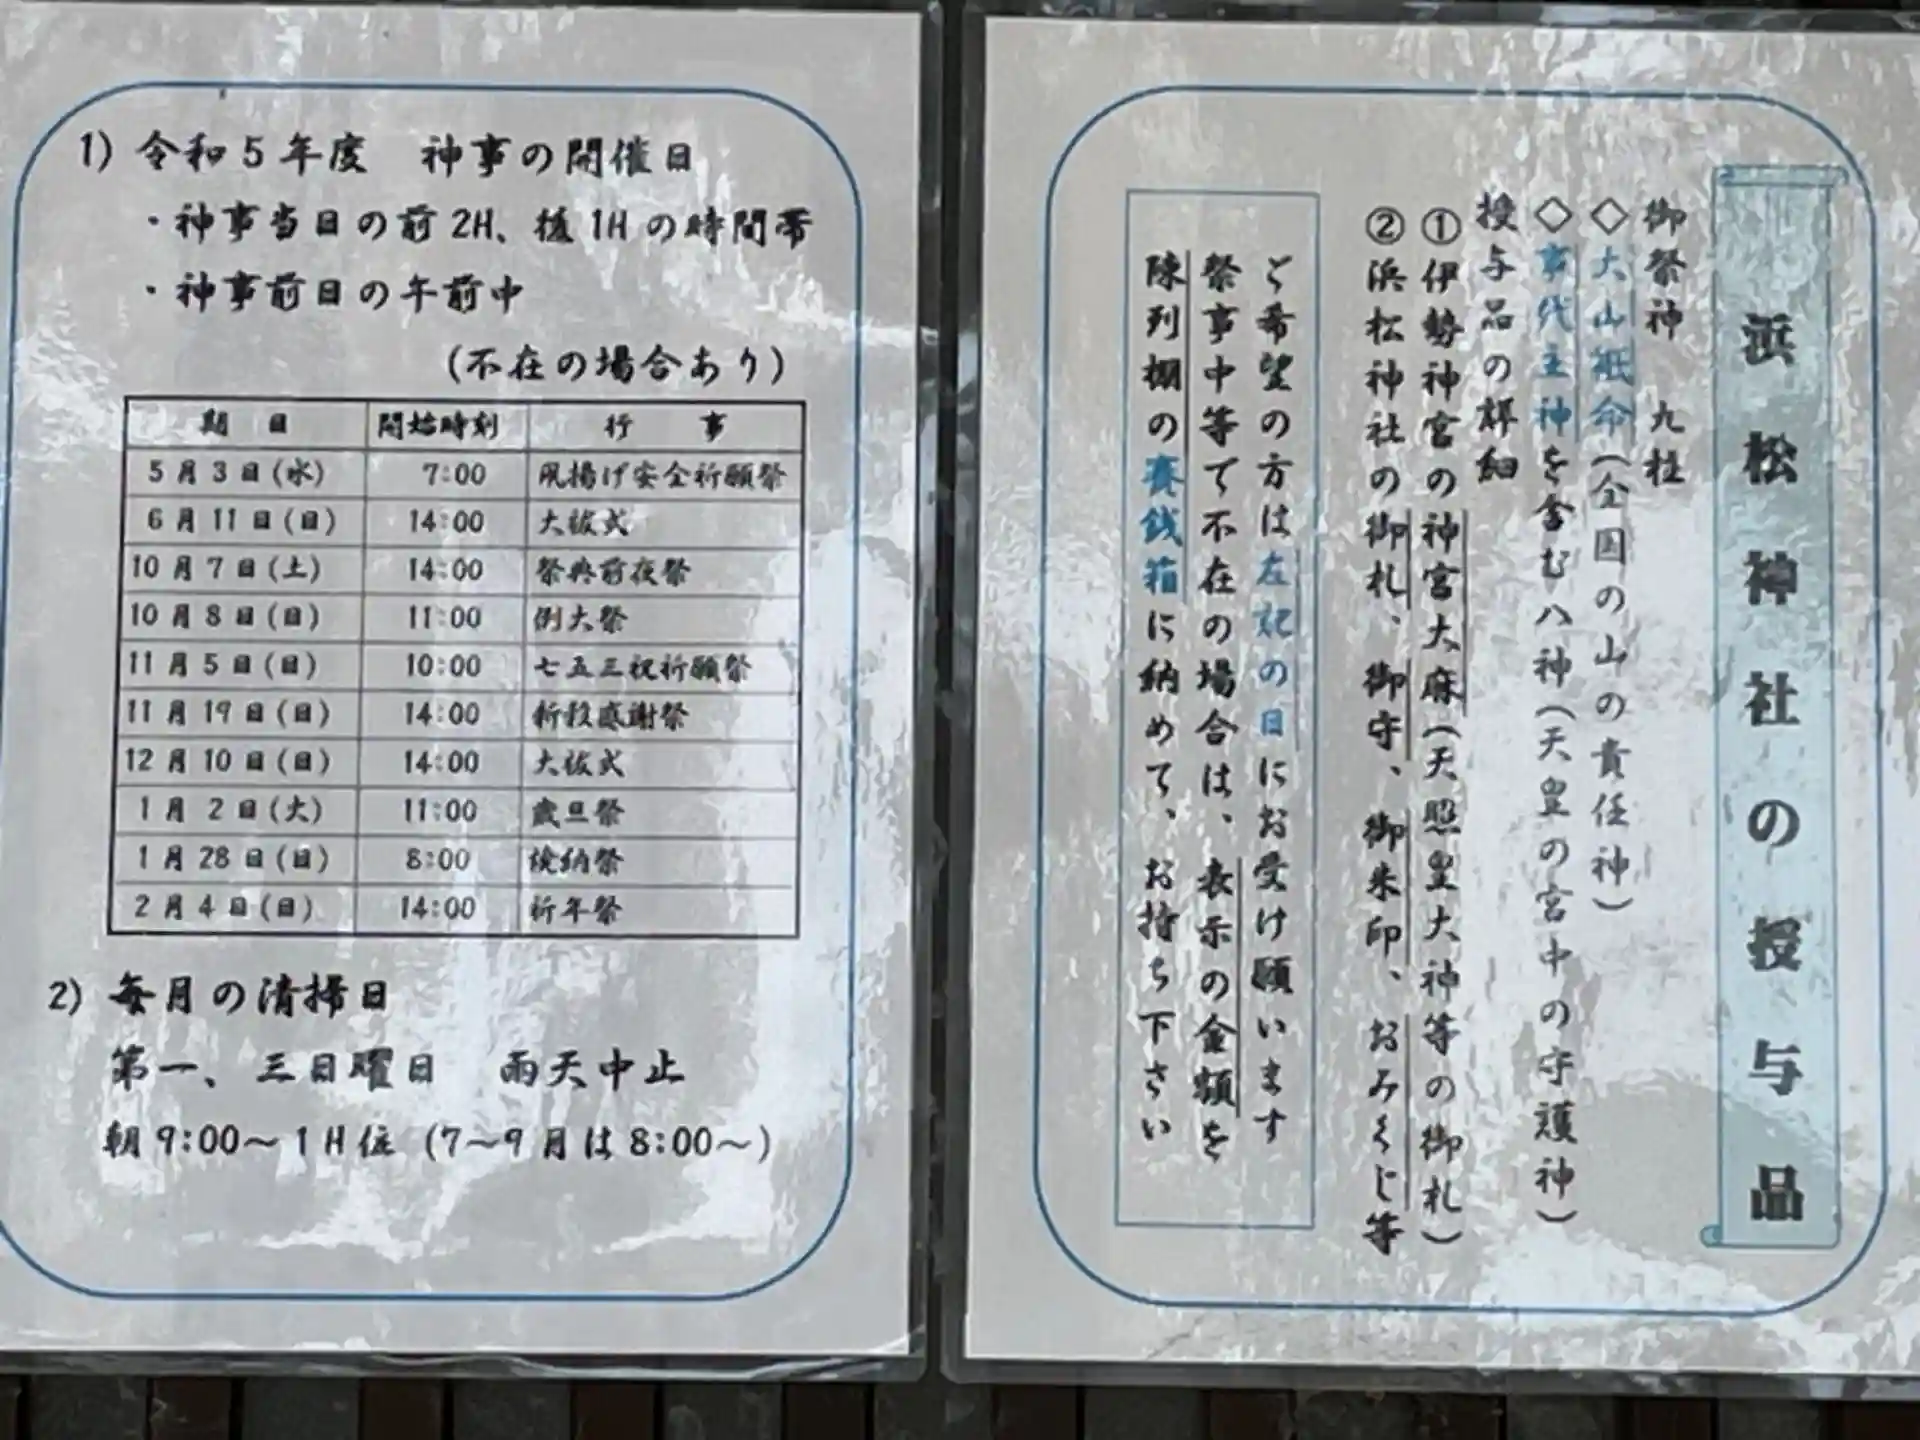 1) 令和5年度　神事の開催日
・神事当日の前2H、後1Hの時間帯
・神事前日の午前中
(不在の場合あり)
期　日　開始時刻　行　事
5月3日(水)　7:00　凧揚げ安全祈願祭
6月11日(日)　14:00　大祓式
10月7日(土)　14:00　祭典前夜祭
10月8日(日)　11:00　例大祭
11月5日(日)　10:00　七五三祝祈願祭
11月19日(日)　14:00　新穀感謝祭
12月10日(日)　14:00　大祓式
1月2日(火)　11:00　歳旦祭
1月28日(日)　8:00　焼納祭
2月4日(日)　14:00　祈年祭
2) 毎月の清掃日
第一、三日曜日　雨天中止
朝9:00〜1H位 (7〜9月は8:00〜)
浜松神社の授与品
御祭神　九柱
◇大山祇命(全国の山の責任神)
◇事代主神を含む八神(天皇の宮中の守護神)
授与品の詳細
①伊勢神宮の神宮大麻(天照皇大神等の御札)
②浜松神社の御札、御守、御朱印、おみくじ等
ご希望の方は左記の日にお受け願います
祭事中等で不在の場合は、表示の金額を
陳列棚の賽銭箱に納めて、お持ち下さい